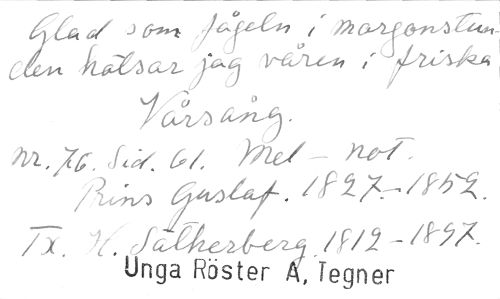 Glad som fågeln i morgonstun-
den hälsar jag våren i friska
Vårsång.
nr. 76. Sid. 61. Mel – not.
Prins Gustaf. 1827.–1852.
Tx. H. Sätherberg. 1812–1897.
Unga Röster A, Tegner